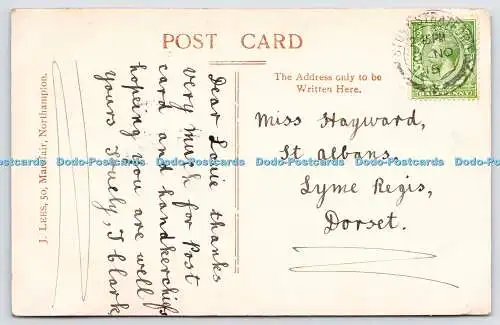 POST CARD
J. LEES, 50, Marefair, Northampton.
Dear Louie thanks
very much for Post
card and handkerchiefs
hoping you are well
yours truely, I Clark,
The Address only to be
Written Here.
Miss Hayward,
St Albans,
Lyme Regis,
Dorset.
2.15PM
NO
Dodo-Postcards Dodo-Postcards Dodo-Postcards Dodo-Postcards Dodo-Postcards